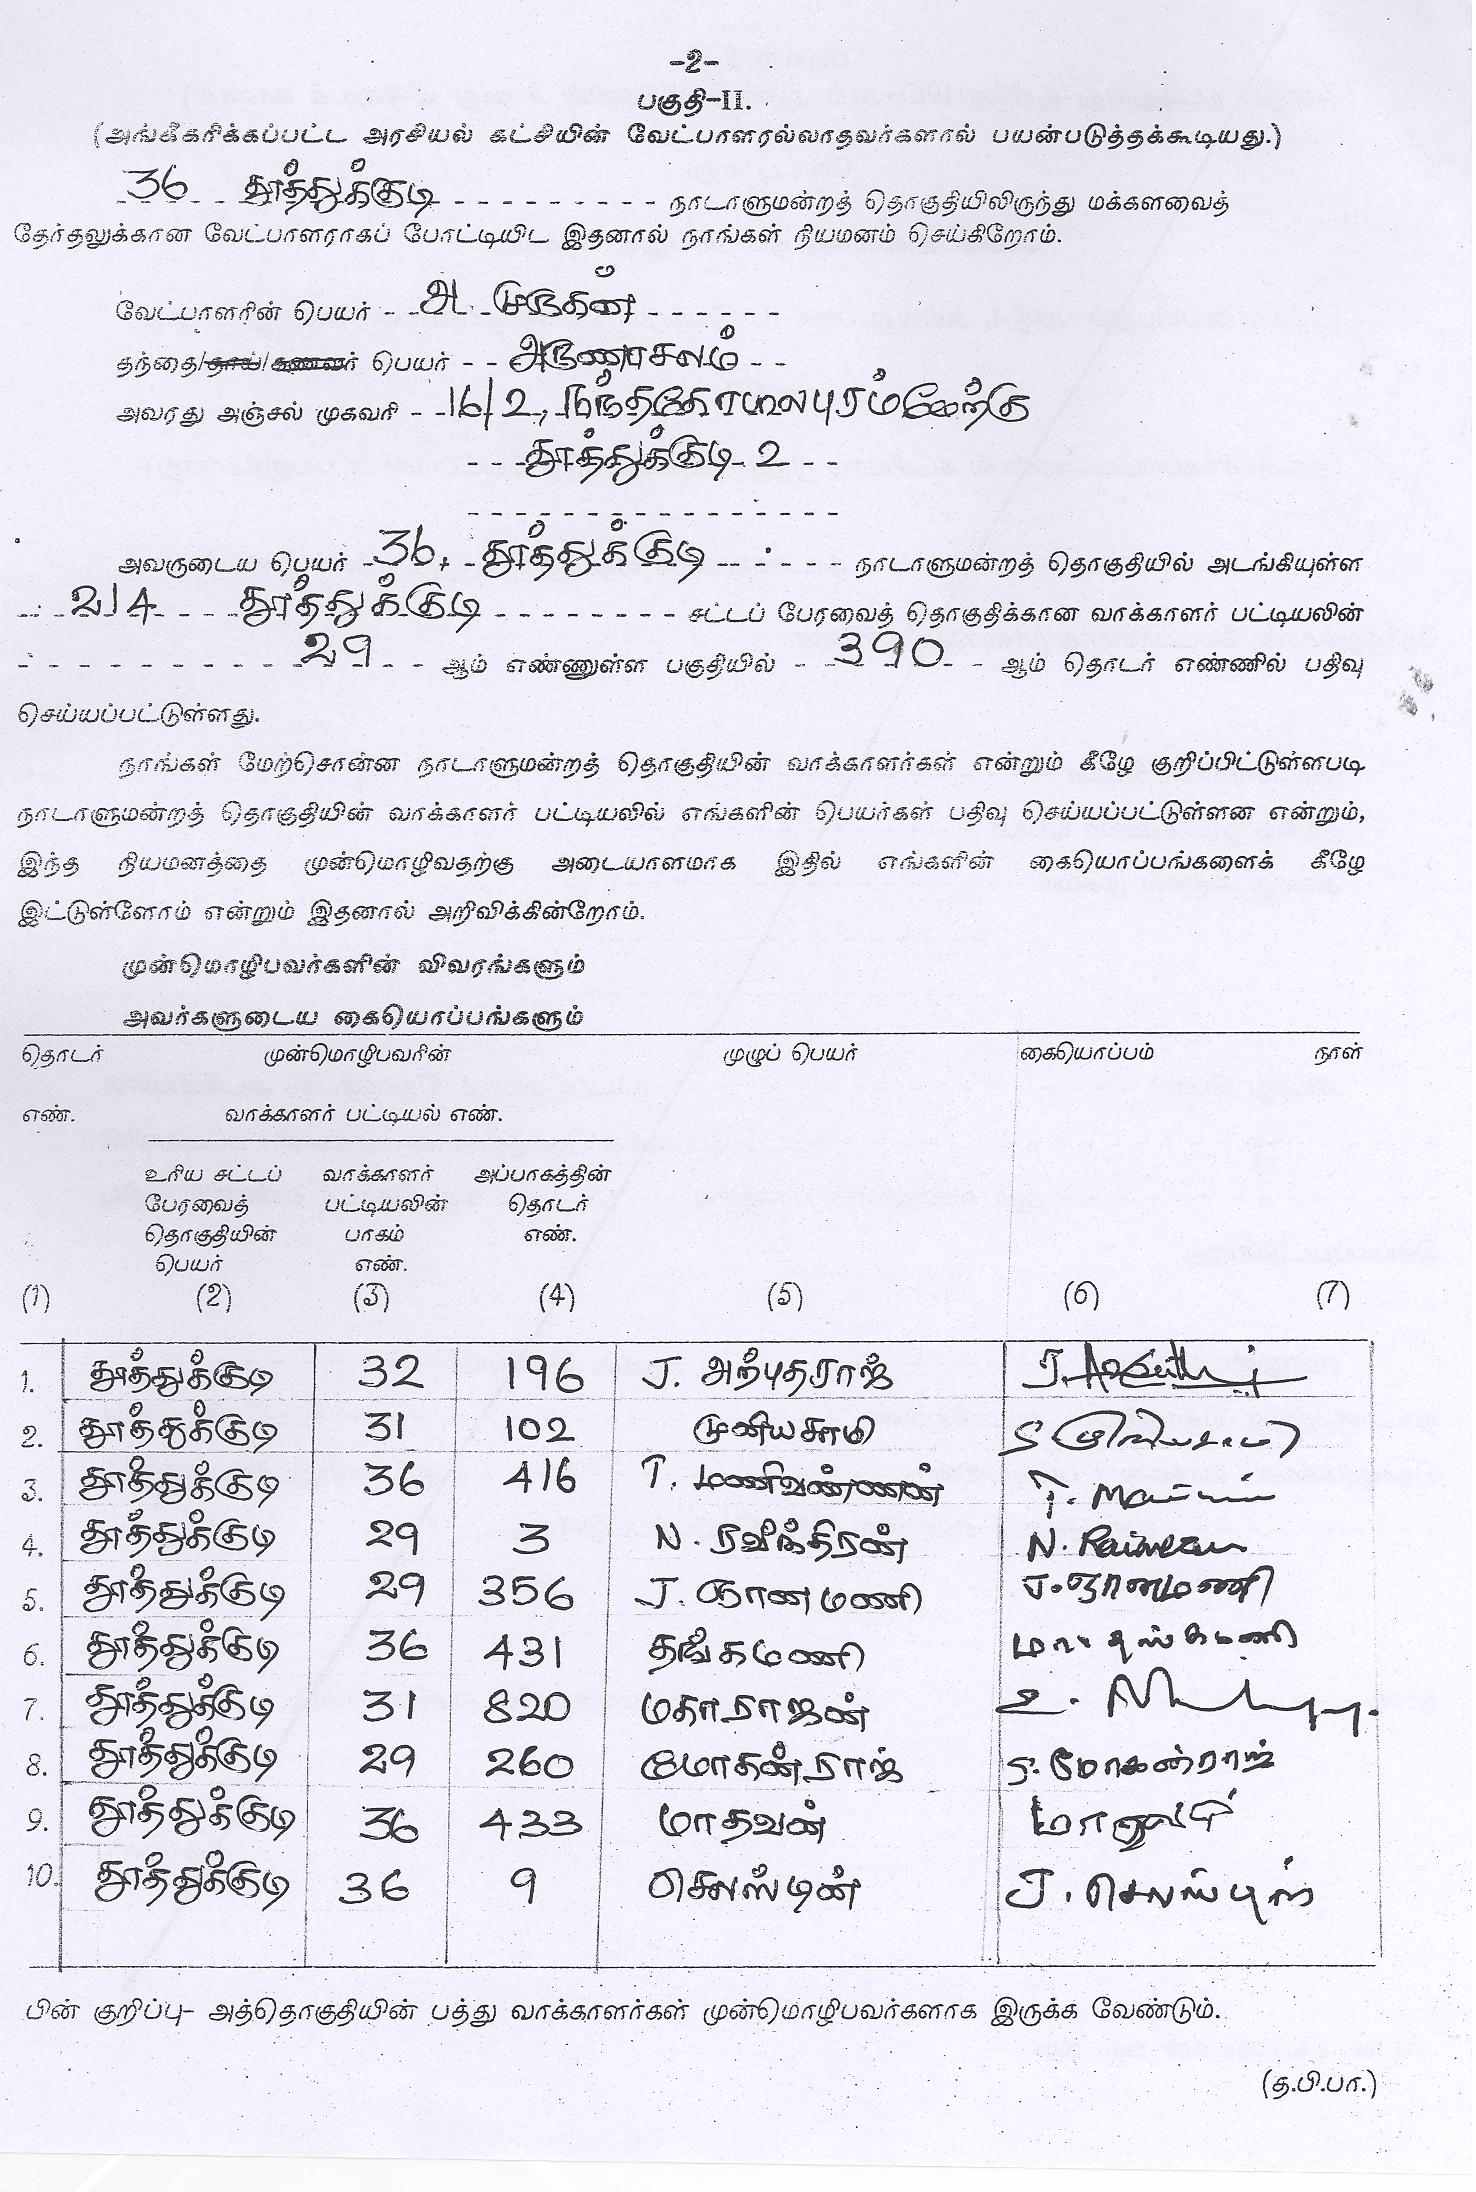 -2-
பகுதி-II.
(அங்கீகரிக்கப்பட்ட அரசியல் கட்சியின் வேட்பாளரல்லாதவர்களால் பயன்படுத்தக்கூடியது.)
36 தூத்துக்குடி நாடாளுமன்றத் தொகுதியிலிருந்து மக்களவைத்
தேர்தலுக்கான வேட்பாளராகப் போட்டியிட இதனால் நாங்கள் நியமனம் செய்கிறோம்.
வேட்பாளரின் பெயர் அ. முருகன்
தந்தை/தாய்/கணவர் பெயர் அருணாசலம்
அவரது அஞ்சல் முகவரி 16/2, நந்தகோபாலபுரம் மேற்கு
தூத்துக்குடி 2
அவருடைய பெயர் 36, தூத்துக்குடி நாடாளுமன்றத் தொகுதியில் அடங்கியுள்ள
214 தூத்துக்குடி சட்டப் பேரவைத் தொகுதிக்கான வாக்காளர் பட்டியலின்
29 ஆம் எண்ணுள்ள பகுதியில் 390 ஆம் தொடர் எண்ணில் பதிவு
செய்யப்பட்டுள்ளது.
நாங்கள் மேற்சொன்ன நாடாளுமன்றத் தொகுதியின் வாக்காளர்கள் என்றும் கீழே குறிப்பிட்டுள்ளபடி
நாடாளுமன்றத் தொகுதியின் வாக்காளர் பட்டியலில் எங்களின் பெயர்கள் பதிவு செய்யப்பட்டுள்ளன என்றும்,
இந்த நியமனத்தை முன்மொழிவதற்கு அடையாளமாக இதில் எங்களின் கையொப்பங்களைக் கீழே
இட்டுள்ளோம் என்றும் இதனால் அறிவிக்கின்றோம்.
முன்மொழிபவர்களின் விவரங்களும்
அவர்களுடைய கையொப்பங்களும்
தொடர் முன்மொழிபவரின் முழுப் பெயர் கையொப்பம் நாள்
எண். வாக்காளர் பட்டியல் எண்.
உரிய சட்டப் வாக்காளர் அப்பாகத்தின்
பேரவைத் பட்டியலின் தொடர்
தொகுதியின் பாகம் எண்.
பெயர் எண்.
(1) (2) (3) (4) (5) (6) (7)
1. தூத்துக்குடி 32 196 J. அற்புதராஜ்
2. தூத்துக்குடி 31 102 முனியசாமி
3. தூத்துக்குடி 36 416 T. மணிவண்ணன்
4. தூத்துக்குடி 29 3 N. ரவீந்திரன்
5. தூத்துக்குடி 29 356 J. ஞானமணி J. ஞானமணி
6. தூத்துக்குடி 36 431 தங்கமணி
7. தூத்துக்குடி 31 820 மகாராஜன்
8. தூத்துக்குடி 29 260 மோகன்ராஜ் S. மோகன்ராஜ்
9. தூத்துக்குடி 36 433 மாதவன்
10. தூத்துக்குடி 36 9 செலஸ்டின்
பின் குறிப்பு- அத்தொகுதியின் பத்து வாக்காளர்கள் முன்மொழிபவர்களாக இருக்க வேண்டும்.
(த.பி.பா.)